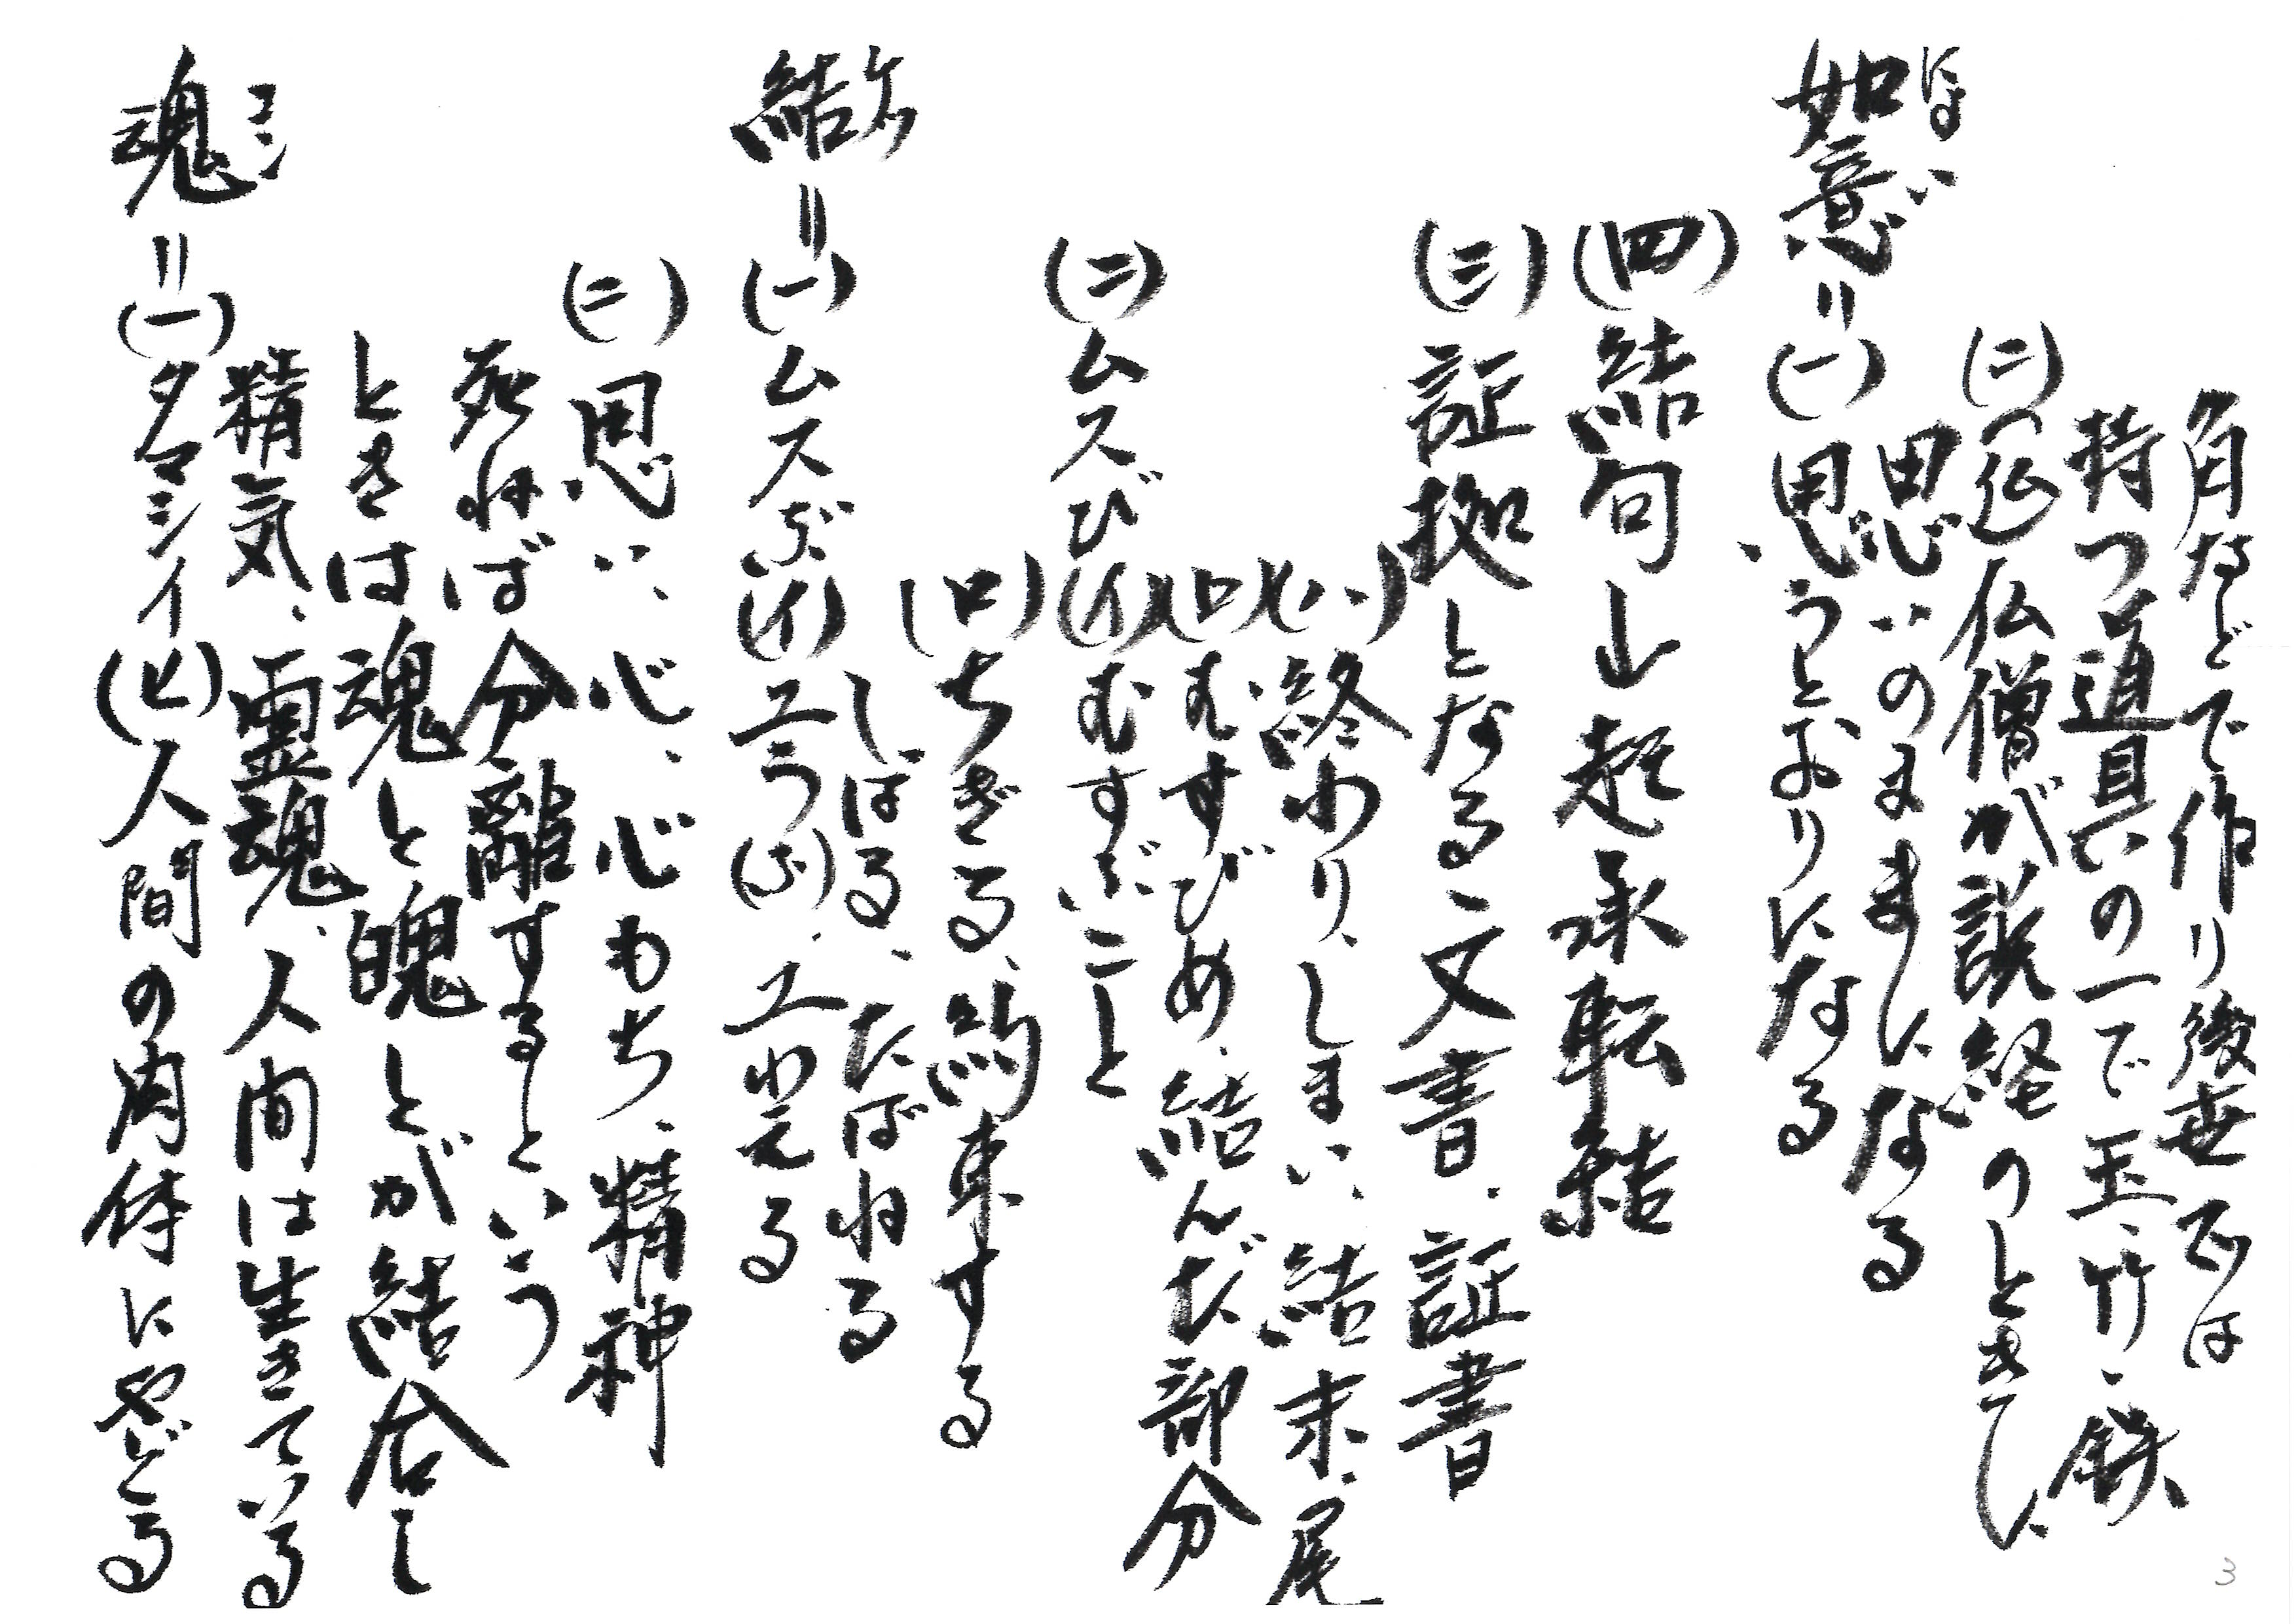 コン
魂＝(一)タマシイ(ヒ)人間の肉体にやどる
精気、霊魂、人間は生きている
ときは魂と魄とが結合し
死ねば分離するという
(二)思い、心、心もち、精神
結＝(一)ムスぶ(イ)ユう(ふ)、ユわえる
ケツ
しばる、たばねる
(ロ)ちぎる、約束する
(二)ムスび(イ)むすぶこと
(ロ)むすびめ、結んだ部分
(ハ)終わり、しまい、結末、尾
(三)証拠となる文書、証書
(四)結句 起承転結
如意＝(一)思うとおりになる
にょい
思いのままになる
(二)(仏)仏僧が説経のときに
持つ道具の一で玉、竹、鉄、
角などで作り後世では
3